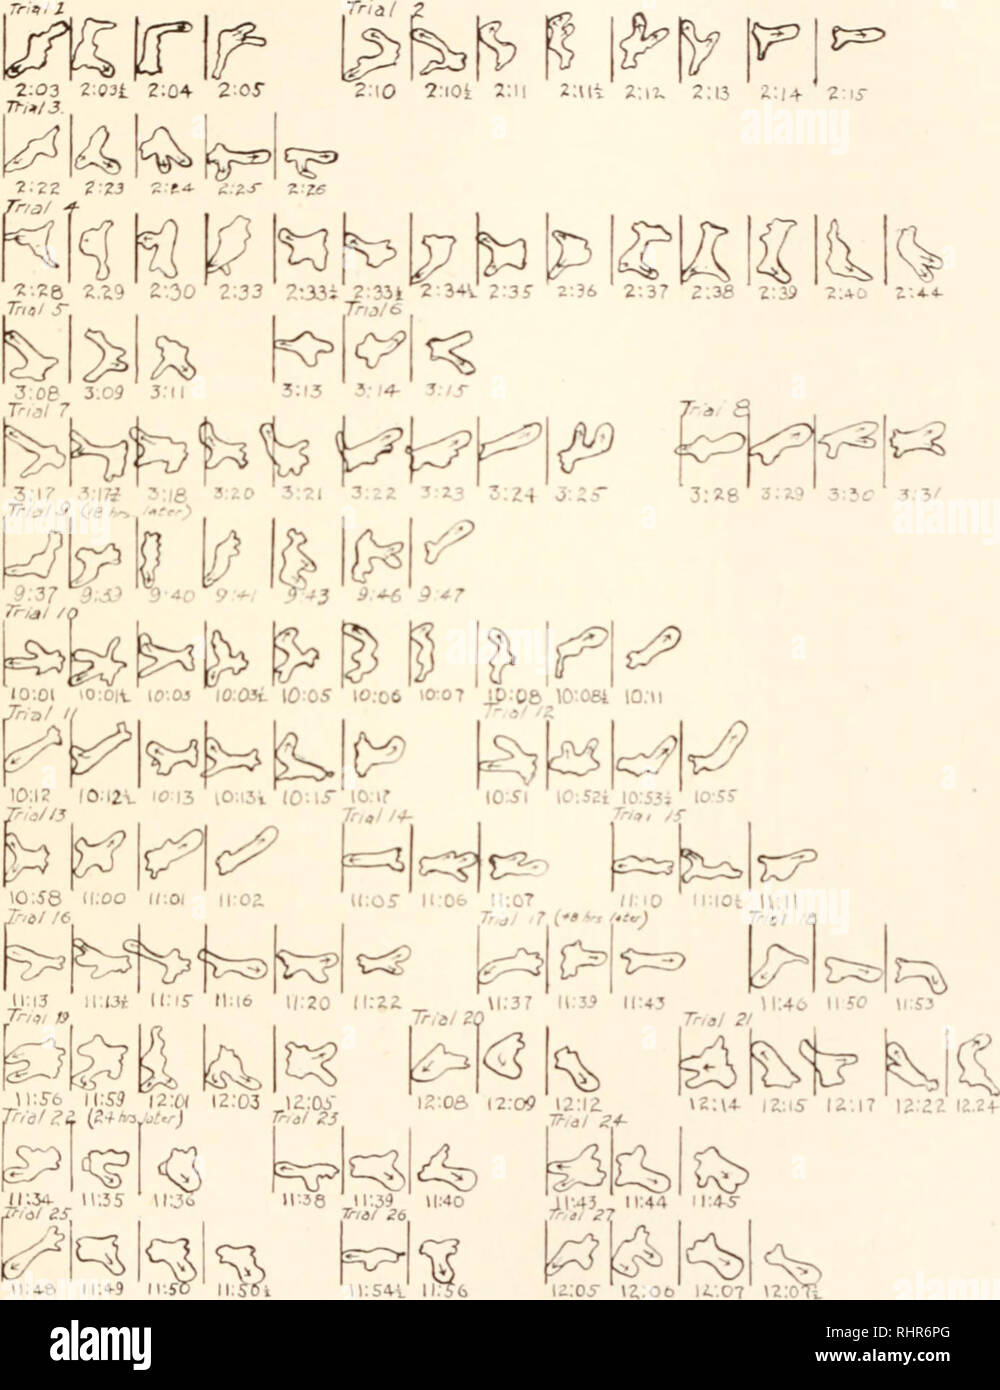 Trial 1 Trial 2
2:03 2:03½ 2:04 2:05 2:10 2:10½ 2:11 2:11½ 2:12 2:13 2:14 2:15
Trial 3.
2:22 2:23 2:24 2:25 2:26
Trial 4
2:28 2:29 2:30 2:33 2:33½ 2:34½ 2:35 2:36 2:37 2:38 2:39 2:40 2:44
Trial 5 Trial 6
3:08 3:09 3:11 3:13 3:14 3:15
Trial 7 Trial 8
3:17 3:17½ 3:18 3:20 3:21 3:22 3:23 3:24 3:25 3:28 3:29 3:30 3:31
Trial 9 (18 hrs. later)
9:37 9:39 9:40 9:41 9:43 9:46 9:47
Trial 10
10:01 10:01½ 10:03 10:03½ 10:05 10:06 10:07 10:08 10:08½ 10:11
Trial 11 Trial 12
10:12 10:12½ 10:13 10:13½ 10:15 10:17 10:51 10:52½ 10:53½ 10:55
Trial 13 Trial 14 Trial 15
10:58 11:00 11:01 11:02 11:05 11:06 11:07 11:10 11:10½ 11:11
Trial 16 Trial 17 (48 hrs later) Trial 18
11:13 11:13½ 11:15 11:16 11:20 11:22 11:37 11:39 11:43 11:46 11:50 11:53
Trial 19 Trial 20 Trial 21
11:56 11:59 12:01 12:03 12:05 12:08 12:09 12:12 12:14 12:15 12:17 12:22 12.24
Trial 22 (24 hrs later) Trial 23 Trial 24
11:34 11:35 11:36 11:38 11:39 11:40 11:43 11:44 11:45
Trial 25 Trial 26 Trial 27
11:48 11:49 11:50 11:50½ 11:54½ 11:56 12:05 12:06 12:07 12:07½
alamy
Image ID: HHR6PG
www.alamy.com